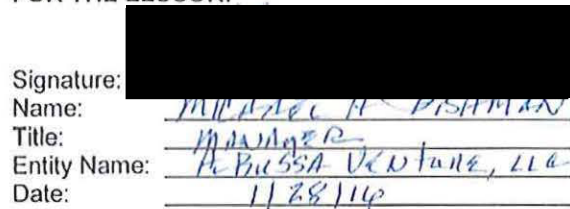 FOR THE LESSOR:
Signature:
Name: MICHAEL A
Title: MANAGER
Entity Name: VENTURE, LLC
Date: 1/28/16